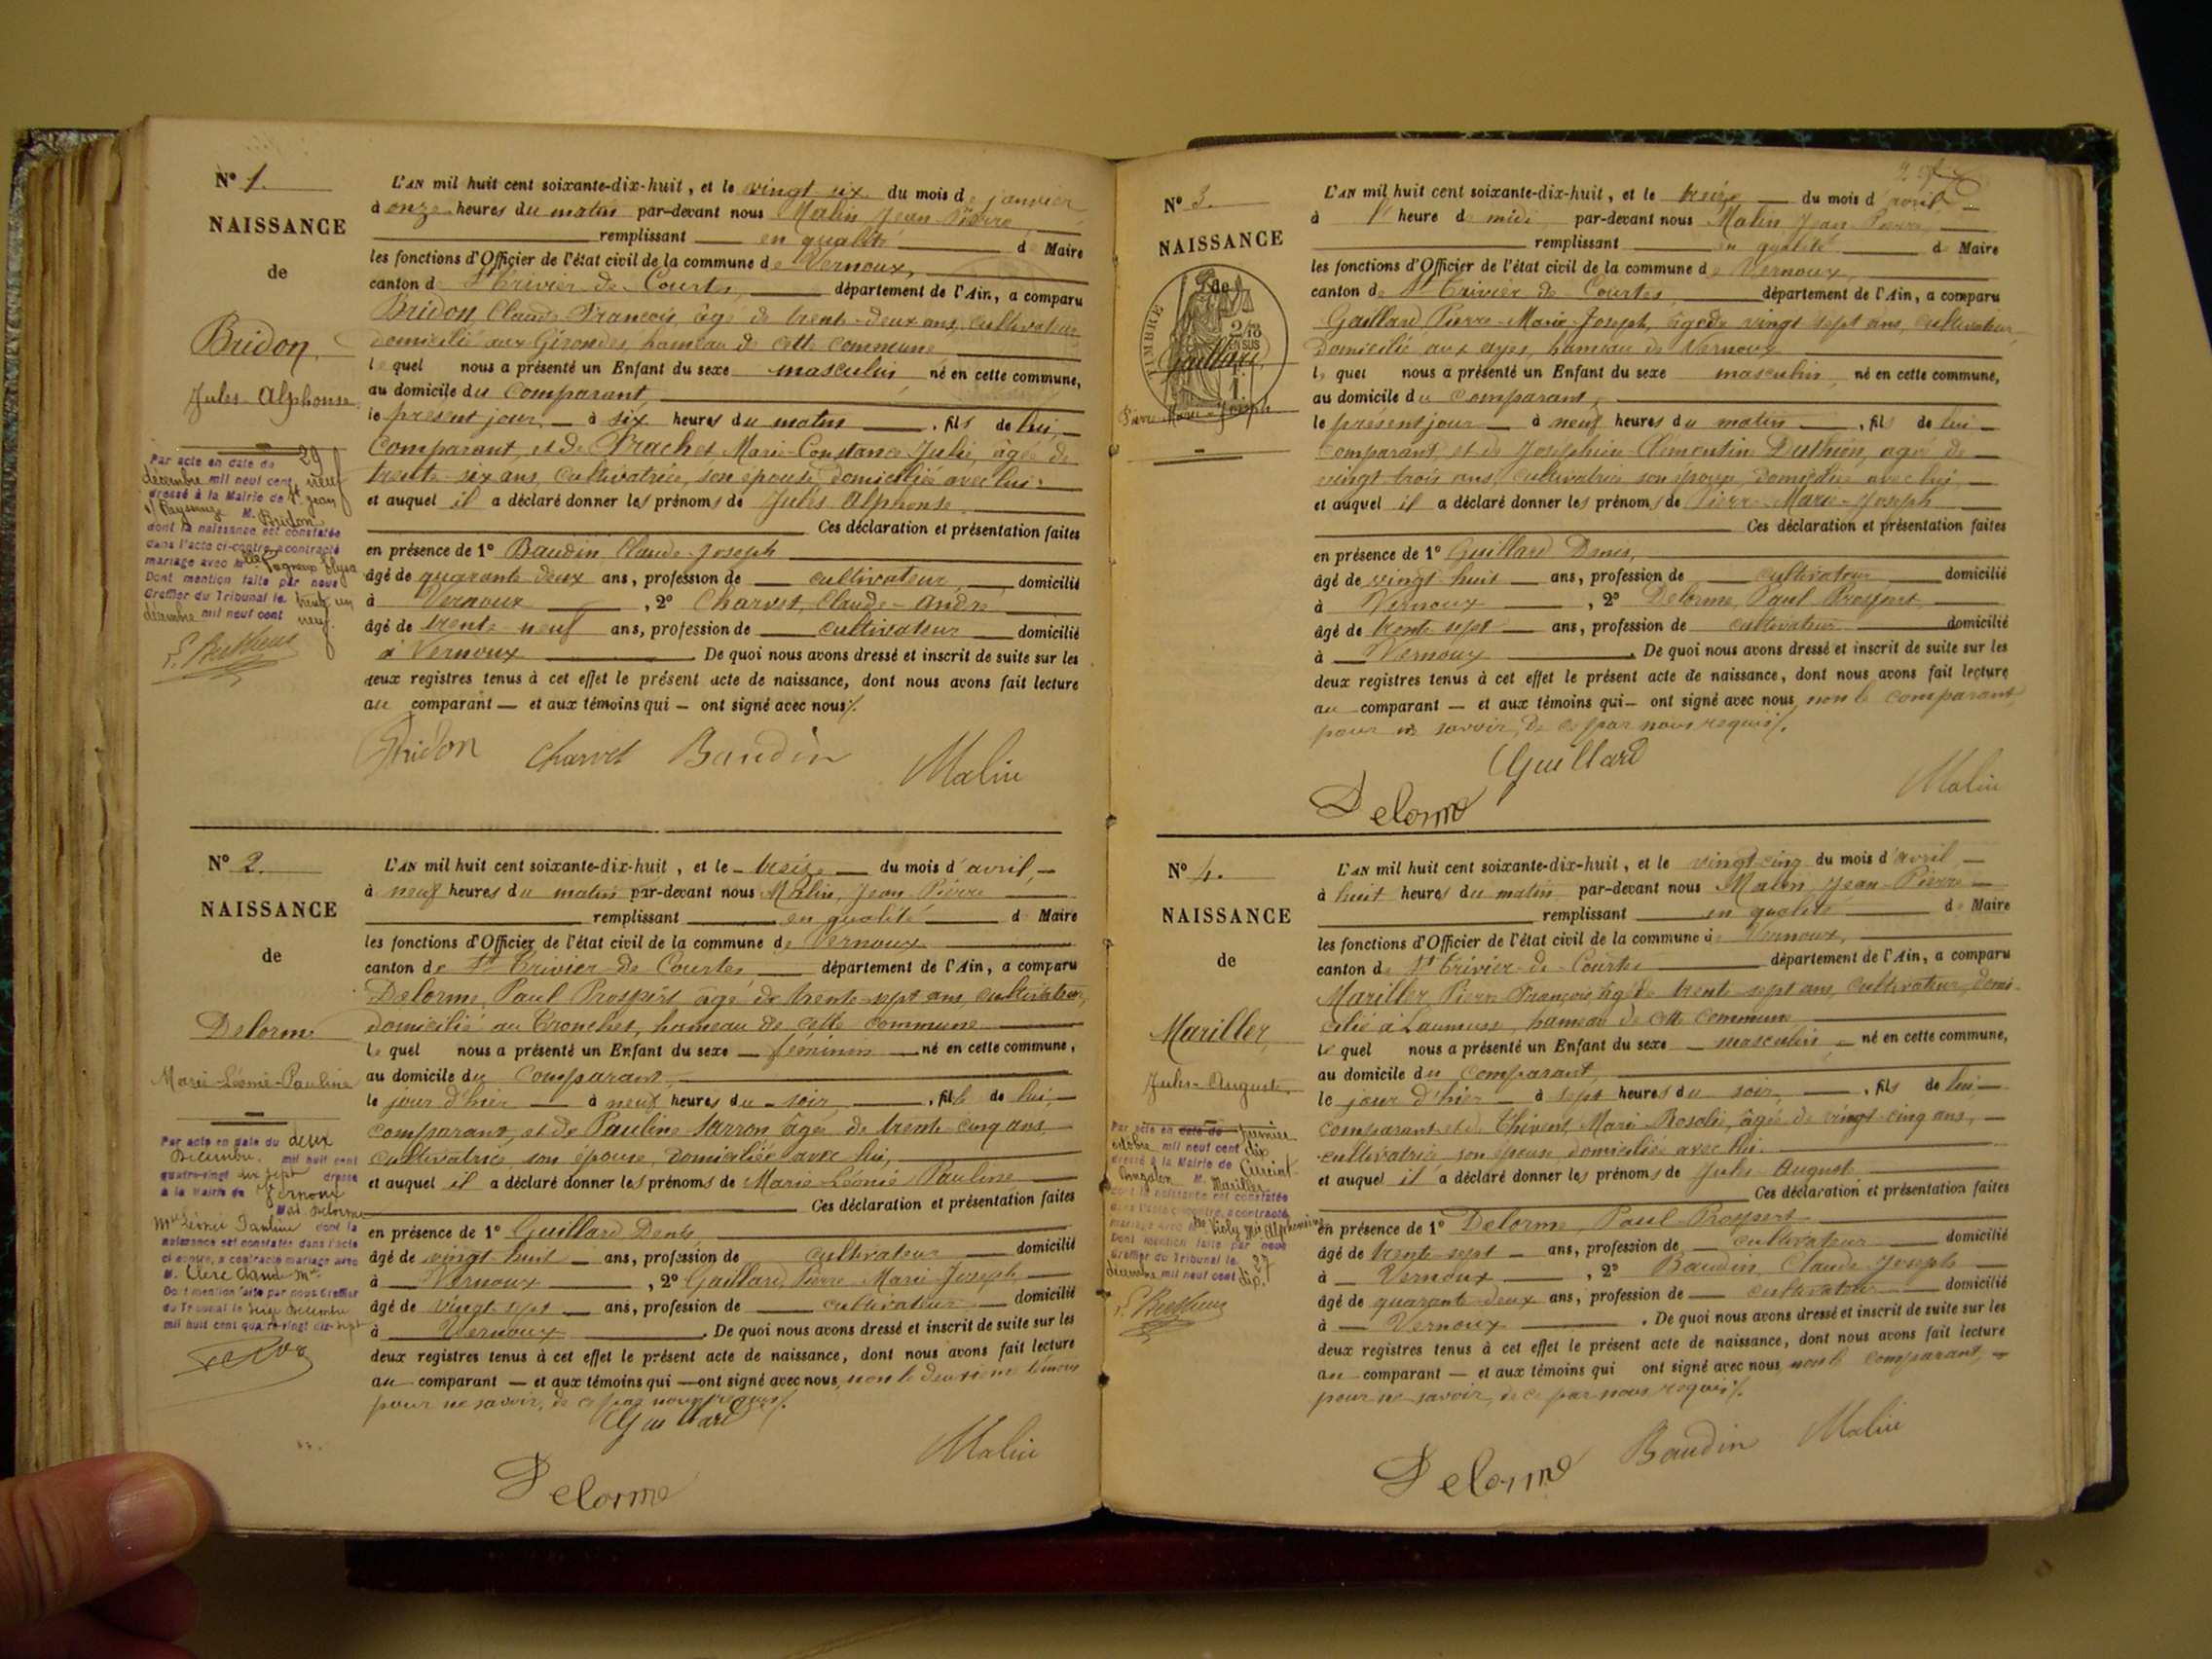 N° 1.
NAISSANCE
de
Bridon,
Jules Alphonse
Par acte en date du 29
décembre mil neuf cent neuf
dressé à la Mairie de St Jean
s/ Reyssouze M. Bridon
dont la naissance est constatée
dans l'acte ci-contre, a contracté
mariage avec Mlle Pagneux Elysa
Dont mention faite par nous
Greffier du Tribunal le trente un
décembre mil neuf cent neuf.
L'AN mil huit cent soixante-dix-huit, et le vingt six du mois de janvier
à onze heures du matin par-devant nous Malin Jean Pierre
remplissant en qualité de Maire
les fonctions d'Officier de l'état civil de la commune de Vernoux,
canton de St Trivier de Courtes, département de l'Ain, a comparu
Bridon Claude François, âgé de trente-deux ans, cultivateur
domicilié aux Girondes, hameau de cette commune
lequel nous a présenté un Enfant du sexe masculin né en cette commune,
au domicile du comparant,
le présent jour, à six heures du matin, fils de lui,
comparant, et de Prachet Marie Constance Julie, âgée de
trente-six ans, cultivatrice, son épouse, domiciliée avec lui;
et auquel il a déclaré donner les prénoms de Jules Alphonse.
Ces déclaration et présentation faites
en présence de 1° Baudin Claude-Joseph
âgé de quarante deux ans, profession de cultivateur domicilié
à Vernoux, 2° Charvet, Claude-André
âgé de trente neuf ans, profession de cultivateur domicilié
à Vernoux. De quoi nous avons dressé et inscrit de suite sur les
deux registres tenus à cet effet le présent acte de naissance, dont nous avons fait lecture
au comparant — et aux témoins qui — ont signé avec nous ./.
Bridon Charvet Baudin Malin
N° 2.
NAISSANCE
de
Delorme
Marie-Léonie-Pauline
Par acte en date du deux
Décembre mil huit cent
quatre-vingt dix sept dressé
à la Mairie de Vernoux
Mad Delorme
Mie Léonie Pauline dont la
naissance est constatée dans l'acte
ci-contre, a contracté mariage avec
M. Clerc Claude Mie
Dont mention faite par nous Greffier
du Tribunal le seize Décembre
mil huit cent quatre-vingt dix-sept
L'AN mil huit cent soixante-dix-huit, et le treize du mois d'avril,
à neuf heures du matin par-devant nous Malin, Jean Pierre
remplissant en qualité d Maire
les fonctions d'Officier de l'état civil de la commune de Vernoux
canton de St Trivier de Courtes département de l'Ain, a comparu
Delorme, Paul Prospert âgé de trente-sept ans, cultivateur,
domicilié au Tronches, hameau de cette commune
lequel nous a présenté un Enfant du sexe féminin né en cette commune,
au domicile du comparant,
le jour d'hier à neuf heures du soir, fille de lui,
comparant, et de Pauline Sarron âgée de trente cinq ans
cultivatrice, son épouse, domiciliée avec lui,
et auquel il a déclaré donner les prénoms de Marie Léonie Pauline
Ces déclaration et présentation faites
en présence de 1° Guillard Denis,
âgé de vingt huit ans, profession de cultivateur domicilié
à Vernoux, 2° Gaillard Pierre Marie Joseph
âgé de vingt sept ans, profession de cultivateur domicilié
à Vernoux. De quoi nous avons dressé et inscrit de suite sur les
deux registres tenus à cet effet le présent acte de naissance, dont nous avons fait lecture
au comparant — et aux témoins qui — ont signé avec nous, non le deuxième témoin
pour ne savoir, de ce par nous requis ./.
Guillard
Delorme Malin
N° 3.
NAISSANCE
de
TIMBRE
2/10 EN SUS
Gaillard,
Pierre-Marie-Joseph
L'AN mil huit cent soixante-dix-huit, et le treize du mois d'avril
à 1 heure de midi par-devant nous Malin Jean Pierre,
remplissant en qualité de Maire
les fonctions d'Officier de l'état civil de la commune de Vernoux,
canton de St Trivier de Courtes, département de l'Ain, a comparu
Gaillard, Pierre-Marie-Joseph, âgé de vingt sept ans, cultivateur
domicilié aux ayes, hameau de Vernoux
lequel nous a présenté un Enfant du sexe masculin, né en cette commune,
au domicile du comparant,
le présent jour à neuf heures du matin, fils de lui
comparant, et de Joséphine Clémentine Duthion, âgée de
vingt trois ans, cultivatrice son épouse, domiciliée avec lui,
et auquel il a déclaré donner les prénoms de Pierre-Marie-Joseph
Ces déclaration et présentation faites
en présence de 1° Guillard Denis,
âgé de vingt huit ans, profession de cultivateur domicilié
à Vernoux, 2° Delorme, Paul Prospert
âgé de trente sept ans, profession de cultivateur domicilié
à Vernoux. De quoi nous avons dressé et inscrit de suite sur les
deux registres tenus à cet effet le présent acte de naissance, dont nous avons fait lecture
au comparant — et aux témoins qui — ont signé avec nous, non le comparant
pour ne savoir, de ce par nous requis ./.
Guillard
Delorme Malin
N° 4.
NAISSANCE
de
Mariller,
Jules-Auguste,
Par acte en date du premier
octobre mil neuf cent dix
dressé à la Mairie de Curciat
Dongalon M. Mariller
dont la naissance est constatée
dans l'acte ci-contre, a contracté
mariage avec Mlle Violy Mie Alphonsine
Dont mention faite par nous
Greffier du Tribunal le 27
décembre mil neuf cent dix.
L'AN mil huit cent soixante-dix-huit, et le vingt cinq du mois d'avril
à huit heures du matin par-devant nous Malin, Jean-Pierre
remplissant en qualité de Maire
les fonctions d'Officier de l'état civil de la commune de Vernoux,
canton de St Trivier-de-Courtes département de l'Ain, a comparu
Mariller, Pierre François, âgé de trente sept ans, cultivateur, domi-
cilié à Laumuse, hameau de cette commune
lequel nous a présenté un Enfant du sexe masculin, né en cette commune,
au domicile du comparant,
le jour d'hier à sept heures du soir, fils de lui
comparant et de Thivent, Marie Rosalie, âgée de vingt-cinq ans,
cultivatrice son épouse domiciliée avec lui.
et auquel il a déclaré donner les prénoms de Jules-Auguste
Ces déclaration et présentation faites
en présence de 1° Delorme, Paul-Prospert
âgé de trente-sept ans, profession de cultivateur domicilié
à Vernoux, 2° Baudin, Claude-Joseph
âgé de quarante deux ans, profession de cultivateur domicilié
à Vernoux. De quoi nous avons dressé et inscrit de suite sur les
deux registres tenus à cet effet le présent acte de naissance, dont nous avons fait lecture
au comparant — et aux témoins qui ont signé avec nous, non le comparant,
pour ne savoir, de ce par nous requis ./.
Delorme Baudin Malin